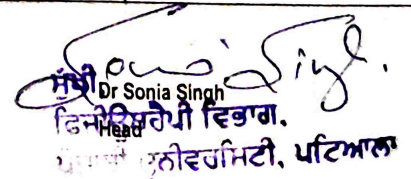 Sonia Singh.
ਮੁੱਖੀ Dr Sonia Singh
ਫਿਜ਼ੀਓਥਰੈਪੀ ਵਿਭਾਗ.
Head
ਯੂਨੀਵਰਸਿਟੀ, ਪਟਿਆਲਾ